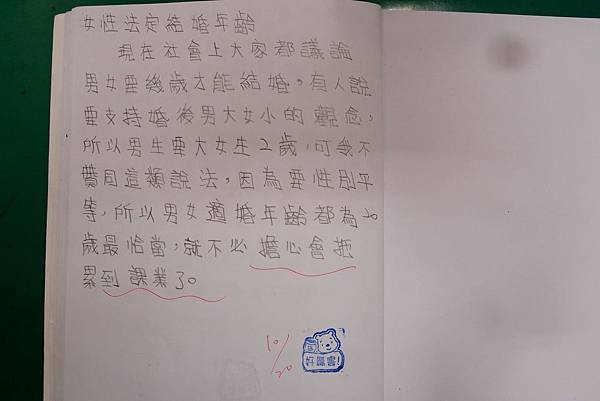 女性法定結婚年齡
現在社會上大家都議論
男女要幾歲才能結婚。有人說
要支持婚後男大女小的觀念,
所以男生要大女生2歲,可我不
贊同這類說法。因為要性別平
等,所以男女適婚年齡都為20
歲最恰當,就不必擔心會拖
累到課業了。
10/20
好厲害!